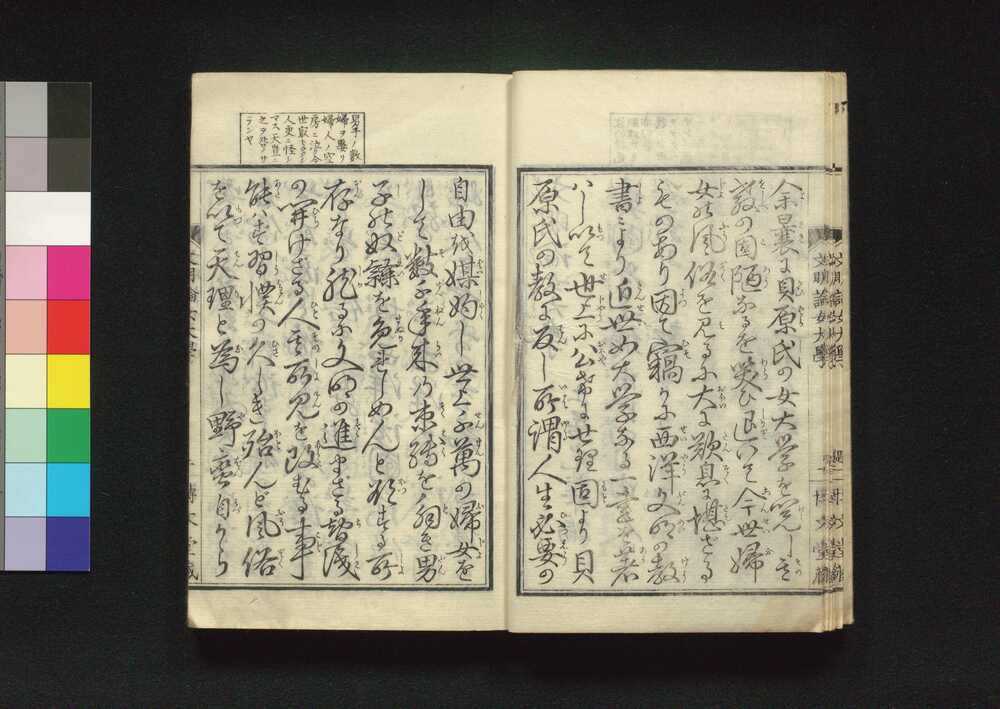 余曩に貝原氏の女大学を閲し其
教の固陋なるを笑ひ退いて今世婦
女の風俗を見るに大に歎息に堪ざる
ものあり因て竊かに西洋文明の教
書により近世女大学なる一書を著
はし以て世上に公布せり理固より貝
原氏の教に反し所謂人生必要の
男子ノ数
婦ヲ娶リ
婦人ノ空
房ニ泣ク今
世
人更ニ怪シ
マス天豈ニ
之ヲ悲マサ
ランヤ
自由を媒妁し世上千萬の婦女を
して数千年来の束縛を解き男
子の奴隷を免れしめんと欲する所
存なり然るに文明の進まざる智識
の開けざる人其所見を改むる事
能はず習慣の久しき殆んど風俗
を以て天理と為し野蛮自から
文明論女大學